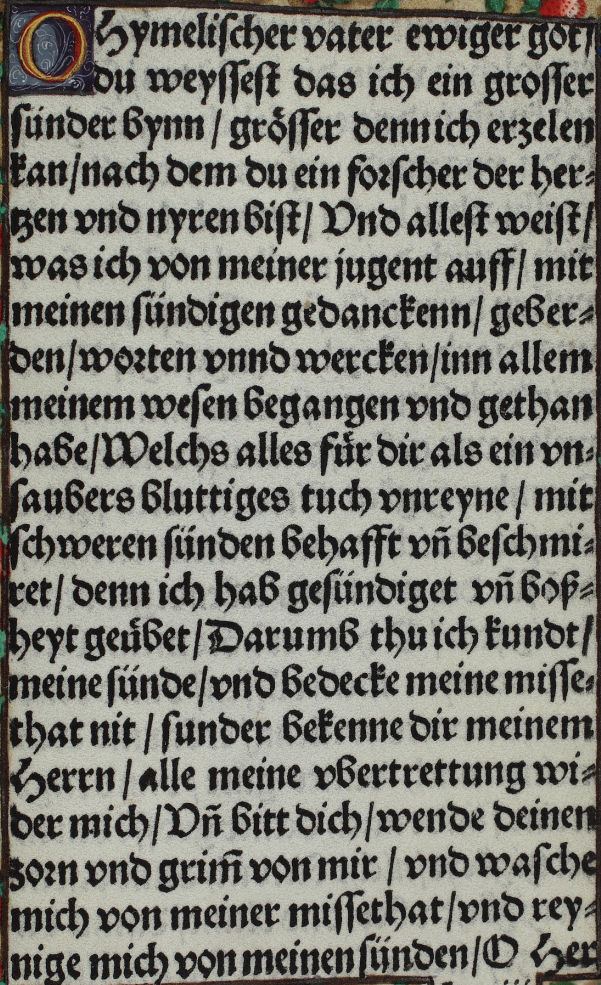 O Hymelischer vater ewiger got/
du weyssest das ich ein grosser
sünder bynn / grösser denn ich erzelen
kan/nach dem du ein forscher der her⸗
tzen vnd nyren bist/ Vnd allest weist/
was ich von meiner jugent auff/ mit
meinen sündigen gedanckenn/ geber⸗
den/worten vnnd wercken/inn allem
meinem wesen begangen vnd gethan
habe/Welchs alles für dir als ein vn⸗
saubers bluttiges tuch vnreyne / mit
schweren sünden behafft vñ beschmi⸗
ret/ denn ich hab gesündiget vñ boß⸗
heyt geübet/Darumb thu ich kundt/
meine sünde/vnd bedecke meine misse⸗
that nit / sunder bekenne dir meinem
Herrn / alle meine vbertrettung wi⸗
der mich/Vñ bitt dich/wende deinen
zorn vnd grim̃ von mir / vnd wasche
mich von meiner missethat/vnd rey⸗
nige mich von meinen sünden/O Her